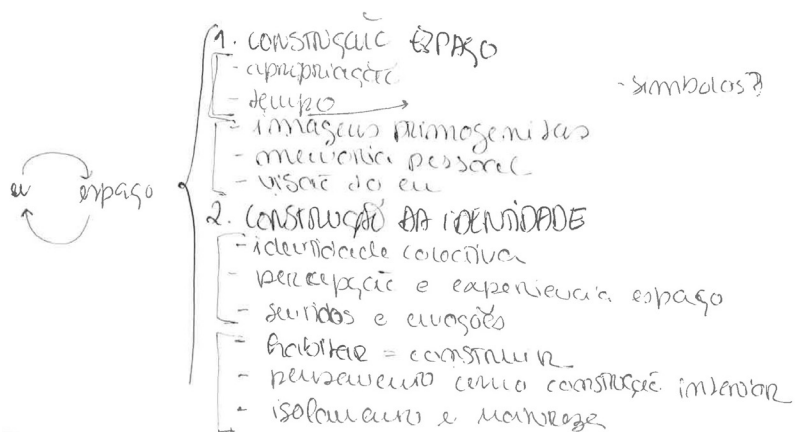 1. CONSTRUÇÃO ESPAÇO
- apropriação
- tempo
- símbolos?
- imagens primogenitas
- memória pessoal
- visão do eu
eu espaço
2. CONSTRUÇÃO DA IDENTIDADE
- identidade colectiva
- percepção e experiencia espaço
- sentidos e emoções
- habitar = construir
- pensamento como construção interior
- isolamento e natureza